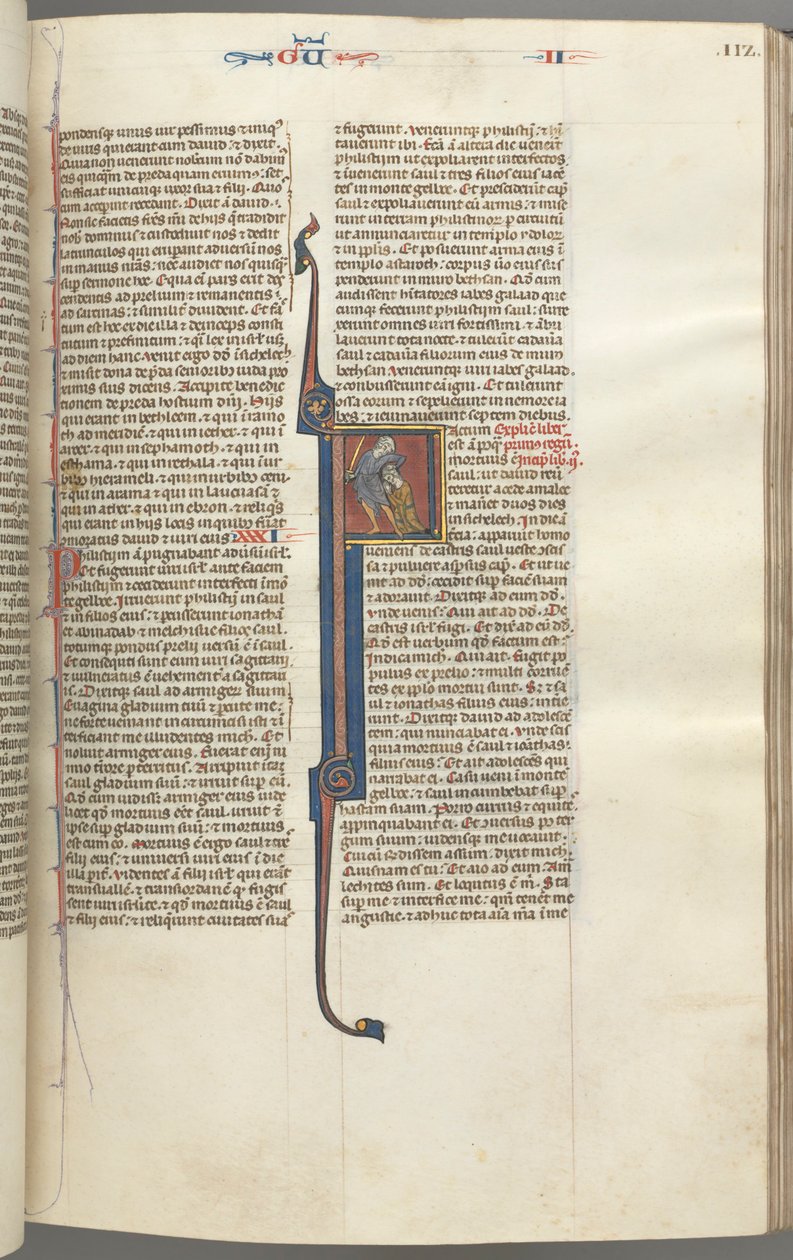 GU II
.112.
pondensque unus vir pessimus & iniqus
de viris qui erant cum david: & dixit.
Quia non venerunt nobiscum non dabim
eis quicqm de preda quam eruim9: set
sufficiat unicuique uxor sua & filii. Quos
cum acceperint recedant. Dixit a david.
Non sic facietis fres mi de hiis que tradidit
nob dominus & custodivit nos & dedit
latrunculos qui eruperant adversum nos
in manus nras: nec audiet nos quisq
sup sermone hoc. Equa eni pars erit des
cendentis ad prelium & remanentis
ad sarcinas: & similit divident. Et fa
ctum est hoc ex die illa & deinceps consti
tutum & prefinitum: & q lex in isrl usq
ad diem hanc. venit ergo dd in sichelech
& misit dona de pda senioribus iuda pro
ximis suis dicens. Accipite benedic
tionem de preda hostium dni. Hiis
qui erant in bethleem. & qui in ramo
th ad meridie. & qui in iether. & qui i
aroer. & qui in sephamoth. & qui in
esthama. & qui in rethala. & qui i ur
bibus hierameli. & qui in urbibus ceni
& qui in arama & qui in lacu asa &
qui in ather. & qui in ebron. & reliqs
qui erant in hiis locis in quibus fuat
omoratus david & viri eius XXXI
Philistim a pugnabant adusum isrl.
Et fugerunt viri isrl ante faciem
philistiim & ceciderunt interfecti i mo
te gelboe. Irruerunt philistiim in saul
& in filios eius: & percusserunt ionatha
et abinadab & melchisue filios saul.
totumque pondus prelii versu e i saul.
Et consequti sunt eum viri sagittarii
& vulneratus e vehement a sagittari
is. Dixitque saul ad armigerum suum
Evagina gladium tuu & percute me:
ne forte veniant incircumcisi isti & i
terficiant me illudentes mich. Et
noluit armiger eius. Fuerat eni ni
mio timore pterritus. Arripuit itaq
saul gladium suu: & irruit sup eu.
Qd cum vidiss armiger eius vide
licet qd mortuus eet saul. irruit &
ipse sup gladium suu: & mortuus
est cum eo. mortuus e ergo saul & tres
filii eius: & universi viri eius i die
illa parit. videntes a filii isrl qui erant
trans valle. & trans iordane q fugis
sent viri isrlite. & qd mortuus e saul
& filii eius: & reliqrunt civitates suas
& fugerunt. veneruntque philistii: & hi
taverunt ibi. Fca a altera die venert
philistiim ut expoliarent interfectos
& invenerunt saul & tres filios eius iace
tes in monte gelboe. Et presciderut cap
saul & expoliaverunt eu armis: & mise
runt in terram philistinor p circuitu
ut annunciaretur in templo ydolor
& in pplis. Et posuerunt arma eius i
templo astaroth: corpus vo eius sus
penderunt in muro bethsan. Qd cum
audissent hitatores iabes galaad que
cunque fecerunt philistiim saul: surre
xerunt omnes viri fortissimi. & abu
laverunt tota nocte. & tulerut cadava
saul & cadava filiorum eius de muro
bethsan. veneruntque viri iabes galaad.
& conbusserunt ea igni. Et tulerunt
ossa eorum & sepelierunt in nemore ia
bes: & ieiunaverunt septem diebus.
Factum Explic liber
est a pq primus regu.
mortuus e Incip lib. ij.
saul: ut david rev
teretur a cede amalec
& manet duos dies
in sichelech. In die a
tcia: apparuit homo
veniens de castris saul veste scis
sa & pulvere asspsus cap. Et ut ve
nit ad dd: cecidit sup faciem suam
& adoravit. Dixitque ad eum dd.
vnde venis: Qui ait ad dd. De
castris isrl fugi. Et dix ad eu dd.
Qd est verbum qd factum est:
Indica mich. Qui ait. Fugit po
pulus ex prelio: & multi corrue
tes ex pplo mortui sunt. Sz & sa
ul & ionathas filius eius: intie
runt. Dixitque david ad adolesce
tem: qui nunciabat ei. vnde scis
quia mortuus e saul & ionathas:
filius eius: Et ait adolescens qui
narrabat ei. Casu veni i monte
gelboe: & saul incumbebat sup
hastam suam. Porro currus & equites
appinquabant ei. Et 9versus post ter
gum suum: vidensque me vocavit.
Cui cu respondissem assum: dixit mich.
Quisnam es tu: Et aio ad eum: Ama
lechites sum. Et locutus e m. Sta
sup me & interfice me: qm tenent me
angustie. & adhuc tota aia mea i me